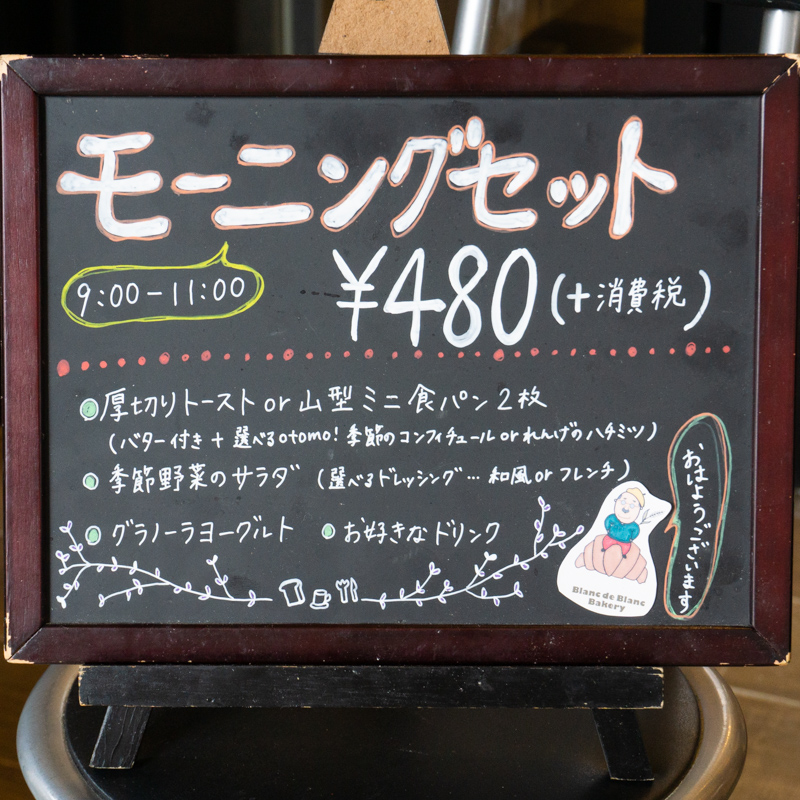 モーニングセット
9:00-11:00
¥480(+消費税)
厚切りトースト or 山型ミニ食パン2枚
(バター付き + 選べるotomo! 季節のコンフィチュール or れんげのハチミツ)
季節野菜のサラダ (選べるドレッシング… 和風 or フレンチ)
グラノーラヨーグルト
お好きなドリンク
おはようございます
Blanc de Blanc
Bakery